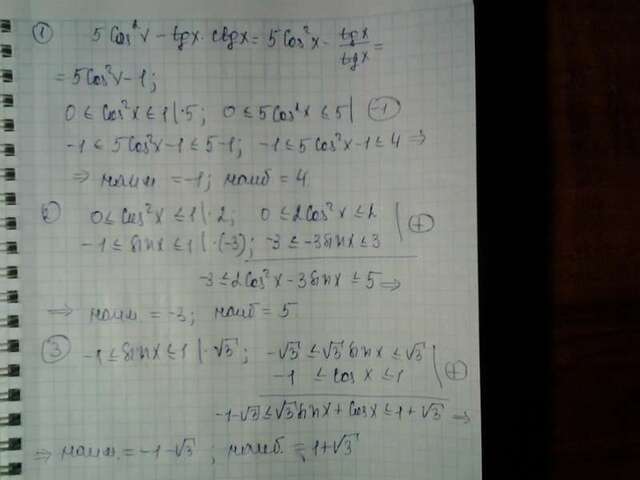 ① 5Cos²x − tgx·ctgx = 5Cos²x − tgx/tgx =
= 5Cos²x − 1;
0 ≤ Cos²x ≤ 1 |·5; 0 ≤ 5Cos²x ≤ 5 | −1
−1 ≤ 5Cos²x − 1 ≤ 5−1; −1 ≤ 5Cos²x − 1 ≤ 4 ⇒
⇒ наим = −1; наиб = 4
② 0 ≤ Cos²x ≤ 1 |·2; 0 ≤ 2Cos²x ≤ 2
−1 ≤ sinx ≤ 1 |·(−3); −3 ≤ −3sinx ≤ 3 | +
−3 ≤ 2Cos²x − 3sinx ≤ 5 ⇒
⇒ наим. = −3; наиб = 5
③ −1 ≤ sinx ≤ 1 |·√3; −√3 ≤ √3 sinx ≤ √3
−1 ≤ Cosx ≤ 1 | +
−1−√3 ≤ √3 sinx + Cosx ≤ 1+√3 ⇒
⇒ наим. = −1−√3; наиб. = 1+√3